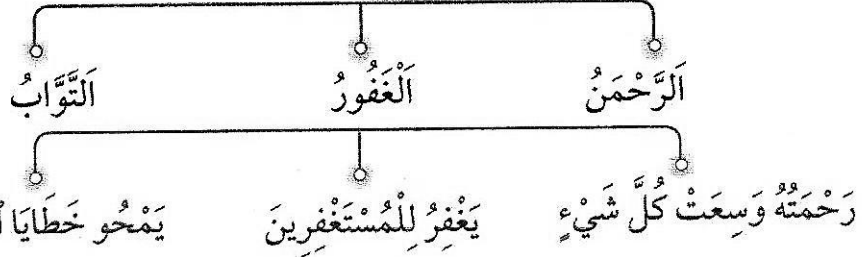 اَلرَّحْمَنُ اَلْغَفُورُ اَلتَّوَّابُ
رَحْمَتُهُ وَسِعَتْ كُلَّ شَيْءٍ يَغْفِرُ لِلْمُسْتَغْفِرِينَ يَمْحُو خَطَايَا